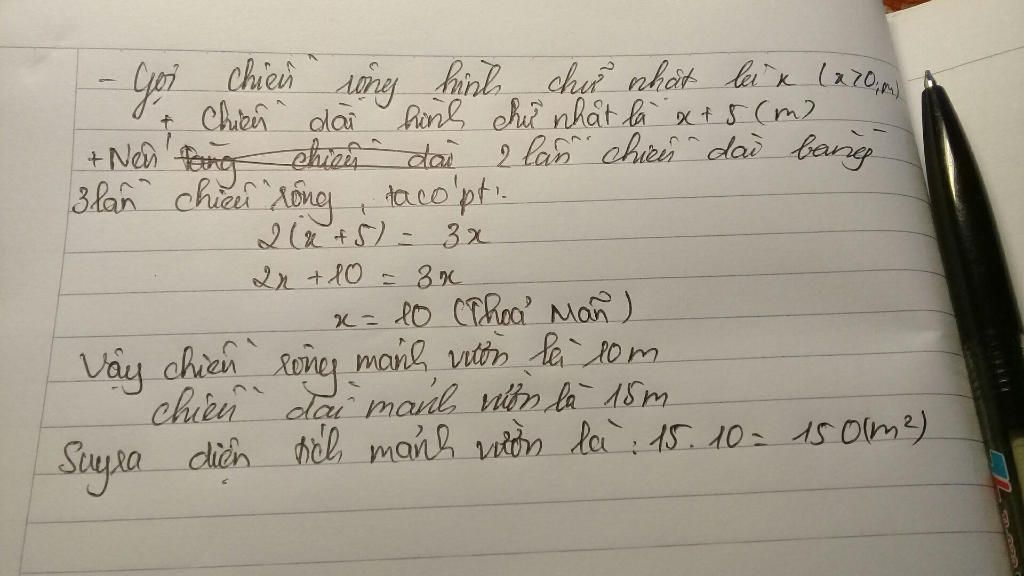 - Gọi chiều rộng hình chữ nhật là x (x>0, m)
+ Chiều dài hình chữ nhật là x + 5 (m)
+ Nếu tăng chiều dài 2 lần chiều dài bằng
3 lần chiều rộng, ta có pt:
2(x + 5) = 3x
2x + 10 = 3x
x = 10 (Thoả Mãn)
Vậy chiều rộng mảnh vườn là 10m
chiều dài mảnh vườn là 15m
Suy ra diện tích mảnh vườn là : 15 . 10 = 150(m²)